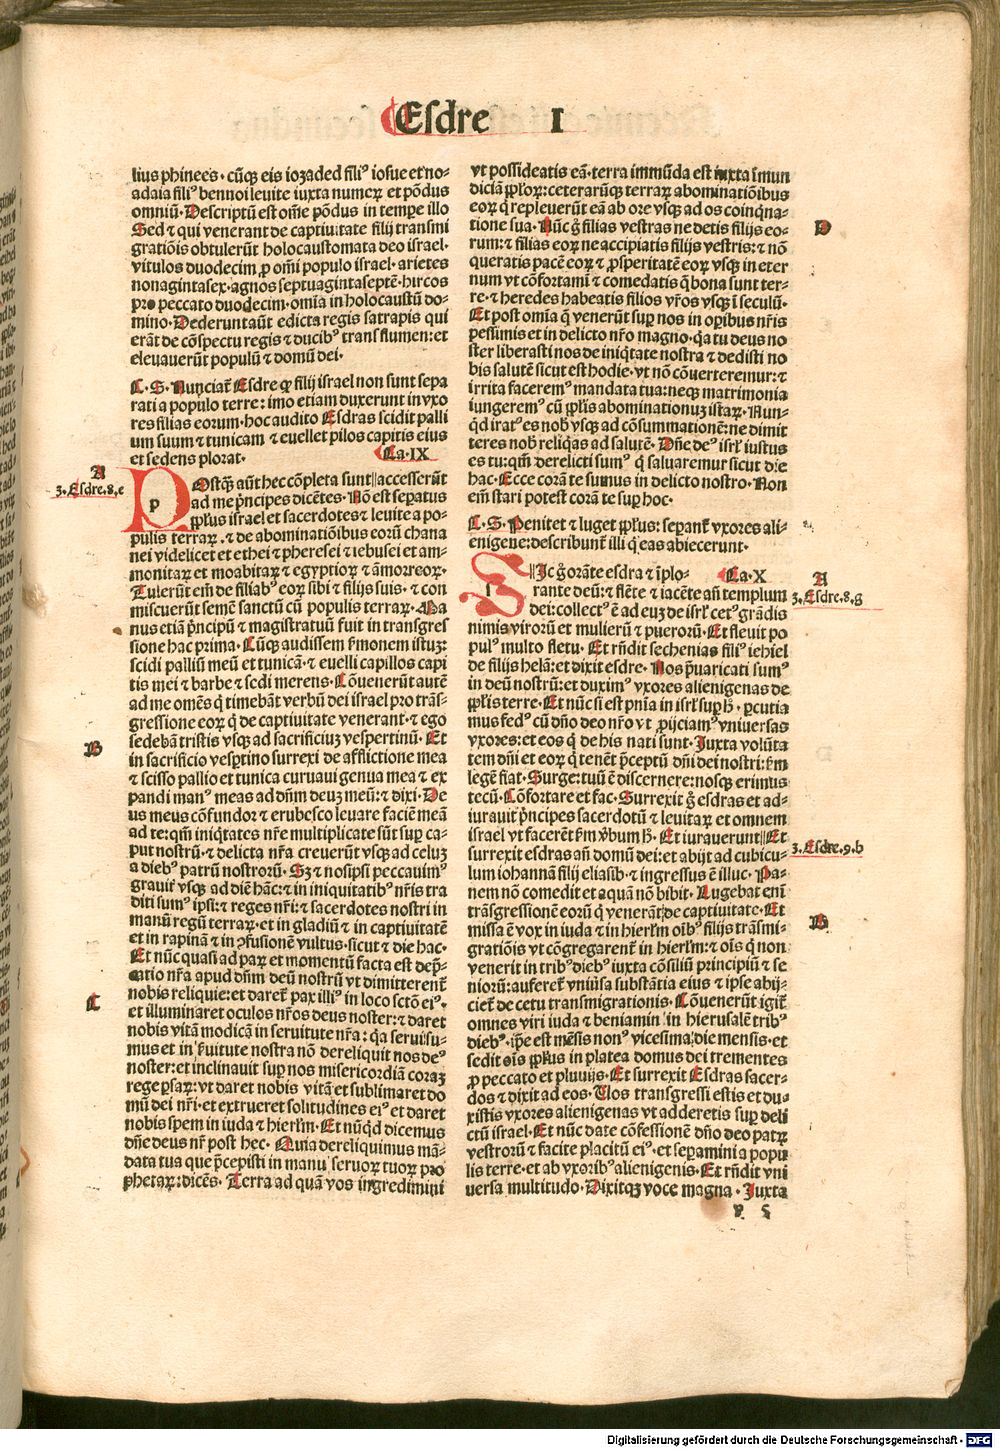 Esdre I
lius phinees · cūqȝ eis iozaded filiꝰ iosue et no-
adaia filiꝰ bennoi leuite iuxta numeꝝ et pōdus
omniū · Descriptū est om̄e pōdus in tempe illo
Sed ⁊ qui venerant de captiuitate filij transmi
gratiōis obtulerūt holocaustomata deo israel·
vitulos duodecim ꝓ om̄i populo israel · arietes
nonagintasex · agnos septuagintaseptē · hircos
pro peccato duodecim · om̄ia in holocaustū do-
mino · Dederunt aūt edicta regis satrapis qui
erāt de cōspectu regis ⁊ ducibꝰ trans flumen: et
eleuauerūt populū ⁊ domū dei·
C · S · Nunciat̄ Esdre ꝙ filij israel non sunt sepa
rati a populo terre: imo etiam duxerunt in vxo
res filias eorum · hoc audito Esdras scidit palli
um suum ⁊ tunicam ⁊ euellet pilos capitis eius
et sedens plorat· Ca · IX
A
3 · Esdre · 8 · e
POstꝙ̄ aūt hec cōpleta sunt || accesserūt
ad me p̄ncipes dicētes · Nō est sepatus
pp̄lus israel et sacerdotes ⁊ leuite a po-
pulis terraꝝ · ⁊ de abominatiōibus eorū chana
nei videlicet et ethei ⁊ pheresei ⁊ iebusei et am-
monitaꝝ et moabitaꝝ ⁊ egyptioꝝ ⁊ āmorreoꝝ·
Tulerūt em̄ de filiabꝰ eoꝝ sibi ⁊ filijs suis · ⁊ con
miscuerūt semē sanctū cū populis terraꝝ · Ma
nus etiā p̄ncipū ⁊ magistratuū fuit in transgres
sione hac prima · Cūqȝ audissem s̄monem istuȝ:
scidi palliū meū et tunicā · ⁊ euelli capillos capi
tis mei ⁊ barbe ⁊ sedi merens · Cōuenerūt autē
ad me om̄es q̄ timebāt verbū dei israel pro trās-
gressione eoꝝ q̄ de captiuitate venerant · ⁊ ego
sedebā tristis vsqȝ ad sacrificiuȝ vespertinū · Et
B
in sacrificio vesptino surrexi de afflictione mea
⁊ scisso pallio et tunica curuaui genua mea ⁊ ex
pandi manꝰ meas ad dn̄m deuȝ meū: ⁊ dixi · De
us meus cōfundor ⁊ erubesco leuare faciē meā
ad te: qm̄ iniq̄tates nr̄e multiplicate sūt sup ca-
put nostrū · ⁊ delicta nr̄a creuerūt vsqȝ ad celuȝ
a diebꝰ patrū nostrorū · Sȝ ⁊ nosipsi peccauimꝰ
grauit̄ vsqȝ ad diē hāc: ⁊ in iniquitatibꝰ nr̄is tra
diti sumꝰ ipsi: ⁊ reges nr̄i: ⁊ sacerdotes nostri in
manū regū terraꝝ · et in gladiū ⁊ in captiuitatē
et in rapinā ⁊ in ꝯfusionē vultus · sicut ⁊ die hac·
Et nūc quasi ad paꝝ et momentū facta est dep̄-
catio nr̄a apud dn̄m deū nostrū vt dimitterent̄
C
nobis reliquie: et daret̄ pax illiꝰ in loco sctō eiꝰ·
et illuminaret oculos nr̄os deus noster: ⁊ daret
nobis vitā modicā in seruitute nr̄a: q̄a serui su-
mus et in s̄uitute nostra nō dereliquit nos deꝰ
noster: et inclinauit sup nos misericordiā coraȝ
rege psaꝝ: vt daret nobis vitā et sublimaret do
mū dei nr̄i · et extrueret solitudines eiꝰ et daret
nobis spem in iuda ⁊ hierl̄m · Et nūc q̄d dicemus
dn̄e deus nr̄ post hec · Quia dereliquimus mā-
data tua que p̄cepisti in manu seruoꝝ tuoꝝ pro
phetaꝝ: dicēs · Terra ad quā vos ingredimini
vt possideatis eā · terra immūda est iuxta īmun
diciā pp̄loꝝ: ceterarūqȝ terraꝝ abominatiōibus
eoꝝ q̄ repleuerūt eā ab ore vsqȝ ad os coinq̄na-
D
tione sua · Nūc g̊ filias vestras ne detis filijs eo-
rum: ⁊ filias eoꝝ ne accipiatis filijs vestris: ⁊ nō
queratis pacē eoꝝ ⁊ ꝓsperitatē eoꝝ vsqȝ in eter
num vt cōfortami ⁊ comedatis q̄ bona sunt ter-
re · ⁊ heredes habeatis filios vr̄os vsqȝ ī seculū·
Et post om̄ia q̄ venerūt sup nos in opibus nr̄is
pessimis et in delicto nr̄o magno · q̄a tu deus no
ster liberasti nos de iniq̄tate nostra ⁊ dedisti no
bis salutē sicut est hodie · vt nō cōuerteremur: ⁊
irrita faceremꝰ mandata tua: neqȝ matrimonia
iungeremꝰ cū pp̄lis abominationuȝ istaꝝ · Nun-
q̄d iratꝰ es nob̄ vsqȝ ad cōsummationē: ne dimit
teres nob̄ reliq̄as ad salutē · Dn̄e deꝰ isrl̄ iustus
es tu: qm̄ derelicti sumꝰ q̄ saluaremur sicut die
hac · Ecce corā te sumus in delicto nostro · Non
em̄ stari potest corā te sup hoc·
C · S · Penitet ⁊ luget pp̄lus: sepant̄ vxores ali-
enigene: describunt̄ illi q̄ eas abiecerunt·
SIc g̊ orāte esdra ⁊ īplo- Ca · X
A
3 · Esdre · 8 · g
rante deū: ⁊ flēte ⁊ iacēte añ templum
dei: collectꝰ ē ad euȝ de isrl̄ cetꝰ grādis
nimis virorū et mulierū ⁊ puerorū · Et fleuit po
pulꝰ multo fletu · Et rn̄dit sechenias filiꝰ iehiel
de filijs helā: et dixit esdre · Nos p̄uaricati sumꝰ
in deū nostrū: et duximꝰ vxores alienigenas de
pp̄lis terre · Et nūc si est pn̄ia in isrl̄ sup h̄ · pcutia
mus fedꝰ cū dn̄o deo nr̄o vt ꝓijciamꝰ vniuersas
vxores: et eos q̄ de his nati sunt · Iuxta volūta
tem dn̄i et eoꝝ q̄ tenēt p̄ceptū dn̄i dei nostri: s̄m
legē fiat · Surge: tuū ē discernere: nosqȝ erimus
tecū · Cōfortare et fac · Surrexit g̊ esdras et ad-
iurauit p̄ncipes sacerdotū ⁊ leuitaꝝ et omnem
israel vt facerēt s̄m v̄bum h̄ · Et iurauerunt || Et
3 · Esdre · 9 · b
surrexit esdras añ domū dei: et abijt ad cubicu-
lum iohannā filij eliasib · ⁊ ingressus ē illuc · Pa-
nem nō comedit et aquā nō bibit · Lugebat em̄
trāsgressionē eorū q̄ venerāt de captiuitate · Et
B
missa ē vox in iuda ⁊ in hierl̄m oībꝰ filijs trāsmi-
gratiōis vt cōgregarent̄ in hierl̄m: ⁊ oīs q̄ non
venerit in tribꝰ diebꝰ iuxta cōsiliū principiū ⁊ se
niorū: auferet̄ vniūsa substātia eius ⁊ ipse abij-
ciet̄ de cetu transmigrationis · Cōuenerūt igit̄
omnes viri iuda ⁊ beniamin in hierusalē tribꝰ
diebꝰ · ip̄e est mēsis nonꝰ vicesima die mensis · et
sedit oīs pp̄lus in platea domus dei trementes
ꝓ peccato et pluuijs · Et surrexit Esdras sacer-
dos ⁊ dixit ad eos · Vos transgressi estis et du-
xistis vxores alienigenas vt adderetis sup deli
ctū israel · Et nūc date cōfessionē dn̄o deo patꝝ
vestrorū ⁊ facite placitū eiꝰ · et sepamini a popu
lis terre · et ab vxoribꝰ alienigenis · Et rn̄dit vni
uersa multitudo · Dixitqȝ voce magna · Iuxta
Digitalisierung gefördert durch die Deutsche Forschungsgemeinschaft - DFG